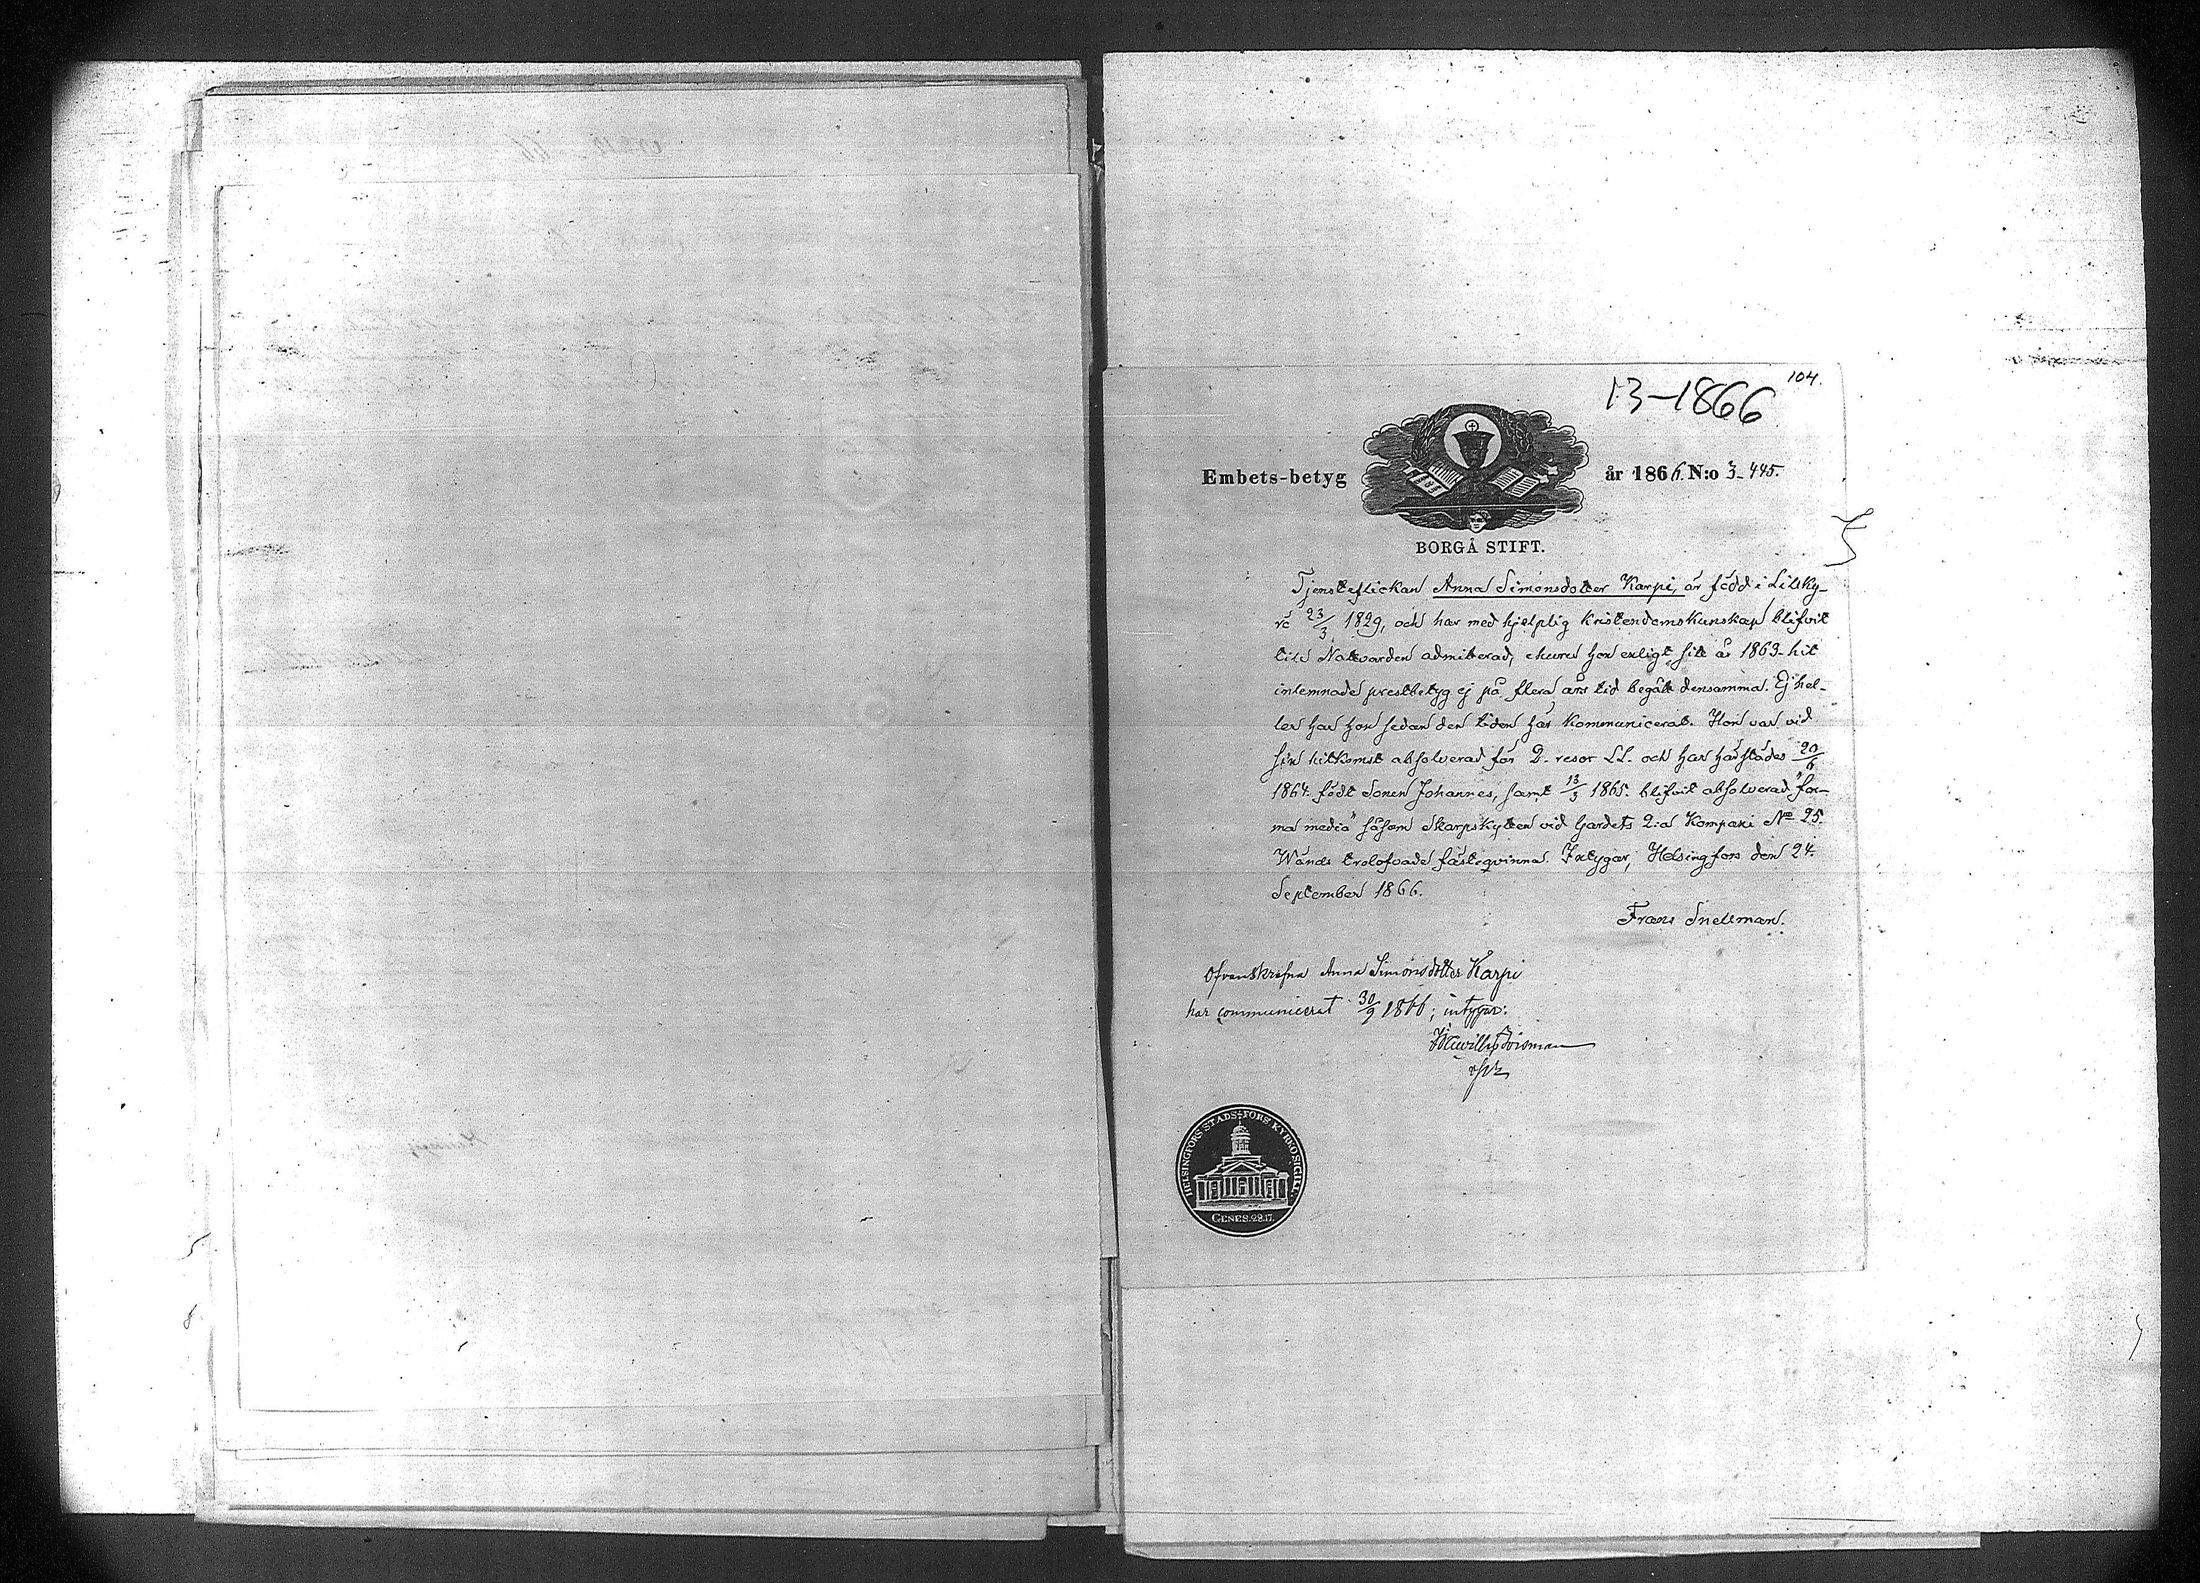 104.
13-1866
Embets-betyg år 1866. N:o 3-445.
BORGÅ STIFT.
Tjensteflickan Anna Simonsdotter Karpi, är född i Lillky-
ro 23/3 1829, och har med hjelplig kristendomskunskap blifvit
till Nattvarden admitterad, ehuru hon enligt sitt år 1863 hit
inlemnade prestbetyg ej på flera års tid begått densamma. Ej hel-
ler har hon sedan den tiden här kommunicerat. Hon var vid
sin hitkomst absolverad för 2. resor LL. och har härstädes 20/6
1864. födt Sonen Johannes, samt 13/3 1865. blifvit absolverad "for-
ma media" såsom Skarpskytten vid Gardets 2:a Kompani No 25.
Wänds trolofvade fästeqvinna. Intygar, Helsingfors den 24.
September 1866.
Frans Snellman.
Ofvanskrefna Anna Simonsdotter Karpi
har communicerat 30/9 1866; intygar:
HELSINGFORS STADS-FÖRS. KYRKOSIGILL.
GENES. 28.17.